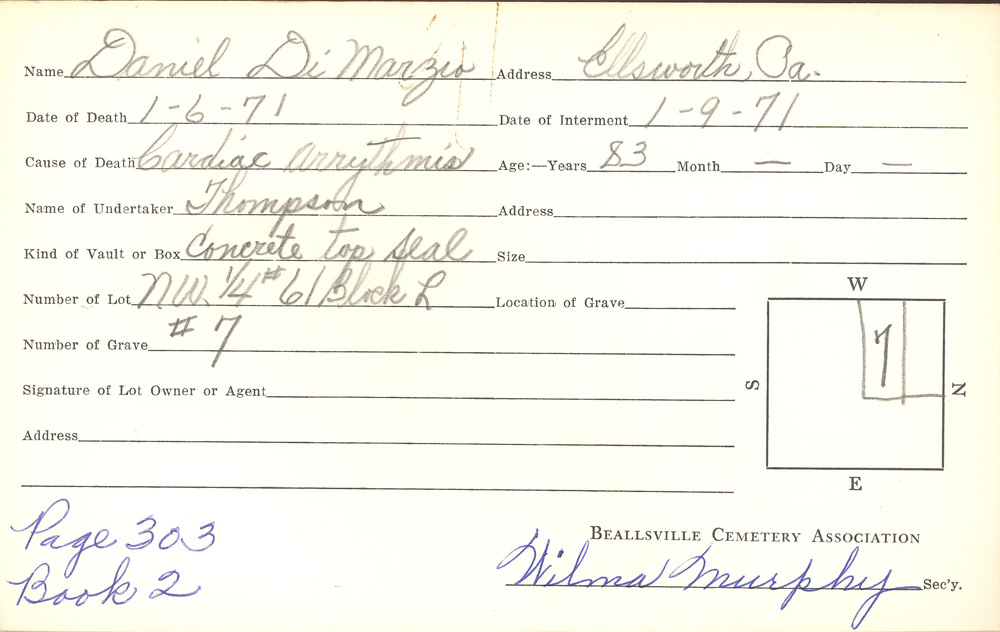 Name Daniel Di Marzio Address Ellsworth, Pa.
Date of Death 1-6-71 Date of Interment 1-9-71
Cause of Death Cardiac arrythmia Age:—Years 83 Month — Day —
Name of Undertaker Thompson Address
Kind of Vault or Box Concrete top seal Size
Number of Lot NW 1/4 #61 Block L Location of Grave
Number of Grave #7
Signature of Lot Owner or Agent
Address
W
S 7 N
E
Page 303
Book 2
BEALLSVILLE CEMETERY ASSOCIATION
Wilma Murphy Sec'y.